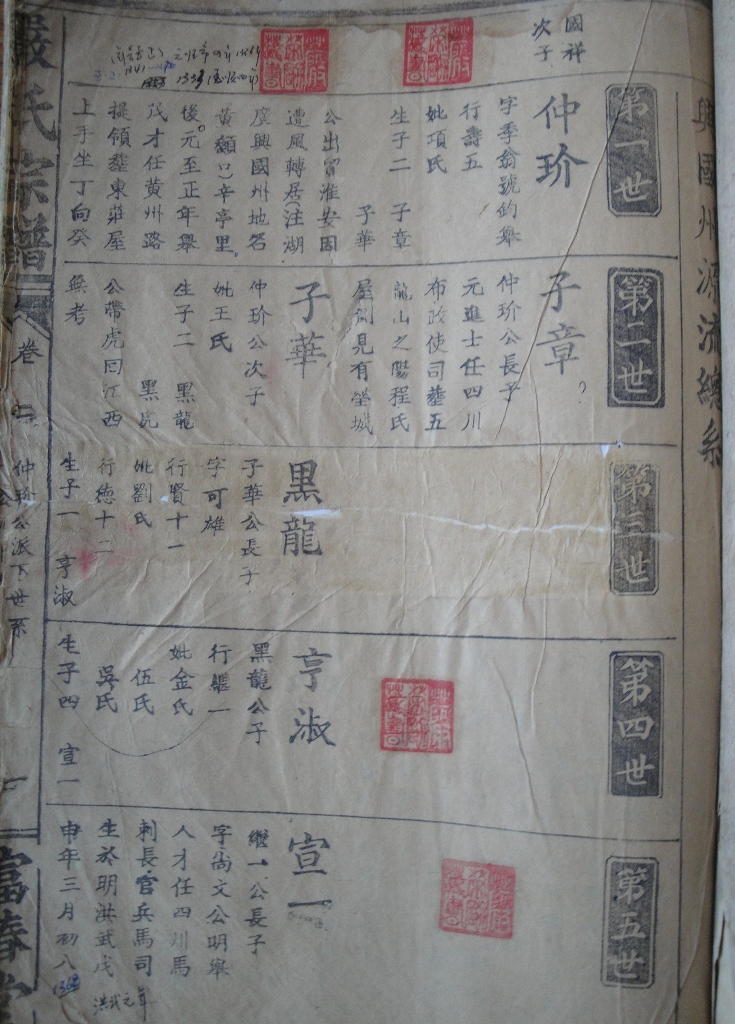 興國州源流總系
第一世
國祥
次子
仲玠
字季翁號鈞舉
行壽五
妣項氏
生子二 子章
子華
公出賈淮安因
遭風轉居注湖
廣興國州地名
黃顙口辛亭里
後元至正年舉
茂才任黃州路
提領塟東莊屋
上手坐丁向癸
第二世
子章
仲玠公長子
元進士任四川
布政使司塟五
龍山之陽程氏
屋側見有塋城
子華
仲玠公次子
妣王氏
生子二 黑龍
黑虎
公帶虎回江西
無考
第三世
黑龍
子華公長子
字可雄
行賢十一
妣劉氏
行德十二
生子一 亨淑
第四世
亨淑
黑龍公子
行繼一
妣金氏
伍氏
吳氏
生子四 宣一
第五世
宣一
繼一公長子
字尚文公明舉
人才任四川馬
刺長官兵馬司
生於明洪武戊
申年三月初八
洪武元年
嚴氏宗譜
卷
仲玠公派下世系
富春堂